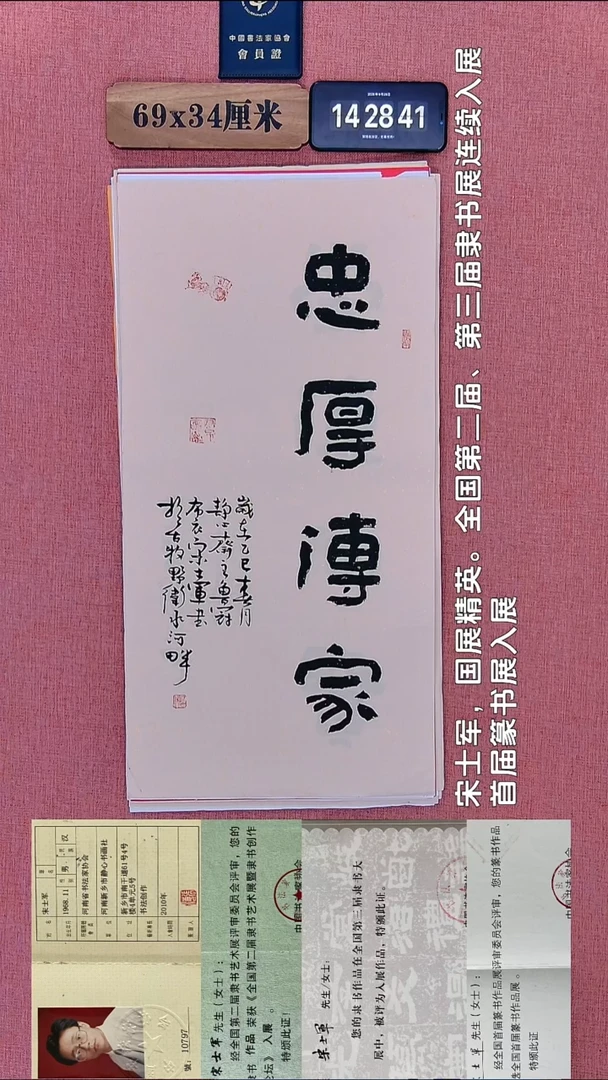 中國書法家協會
會員證
69x34厘米
14 28 41
忠厚傳家
歲在乙巳春月
静心齋主魯牧
布衣宋士軍書
於古牧野衛水河畔
宋士军，国展精英。全国第二届、第三届隶书展连续入展
首届篆书展入展
宋士军
男
汉
1968.11
河南省书法家协会
河南新乡市静心书画社
新乡市南干道61号4号
楼4单元5号
书法创作
2010年
號：10797
宋士军 先生（女士）：
经全国第二届隶书艺术展评审委员会评审，您的
隶书 作品 荣获《全国第二届隶书艺术展暨隶书创作
论坛》 入展 。
特颁此证！
宋士军 先生/女士：
您的隶书作品在全国第三届隶书大
展中，被评为入展作品，特颁此证。
士军 先生（女士）：
经全国首届篆书作品展评审委员会评审，您的篆书作品
选全国首届篆书作品展。
特颁此证